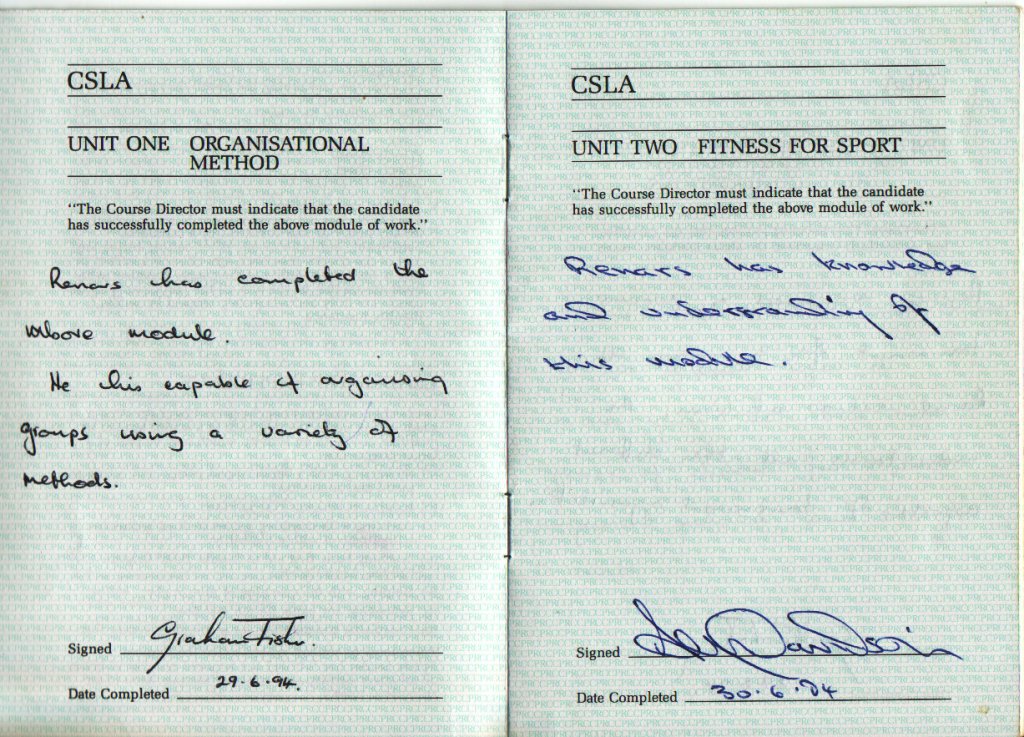 CSLA
UNIT ONE ORGANISATIONAL
METHOD
"The Course Director must indicate that the candidate
has successfully completed the above module of work."
Renars has completed the
above module.
He his capable of organising
groups using a variety of
methods.
Signed Graham Fisher.
Date Completed 29.6.94.
CSLA
UNIT TWO FITNESS FOR SPORT
"The Course Director must indicate that the candidate
has successfully completed the above module of work."
Renars has knowledge
and understanding of
this module.
Signed Davidson
Date Completed 30.6.94